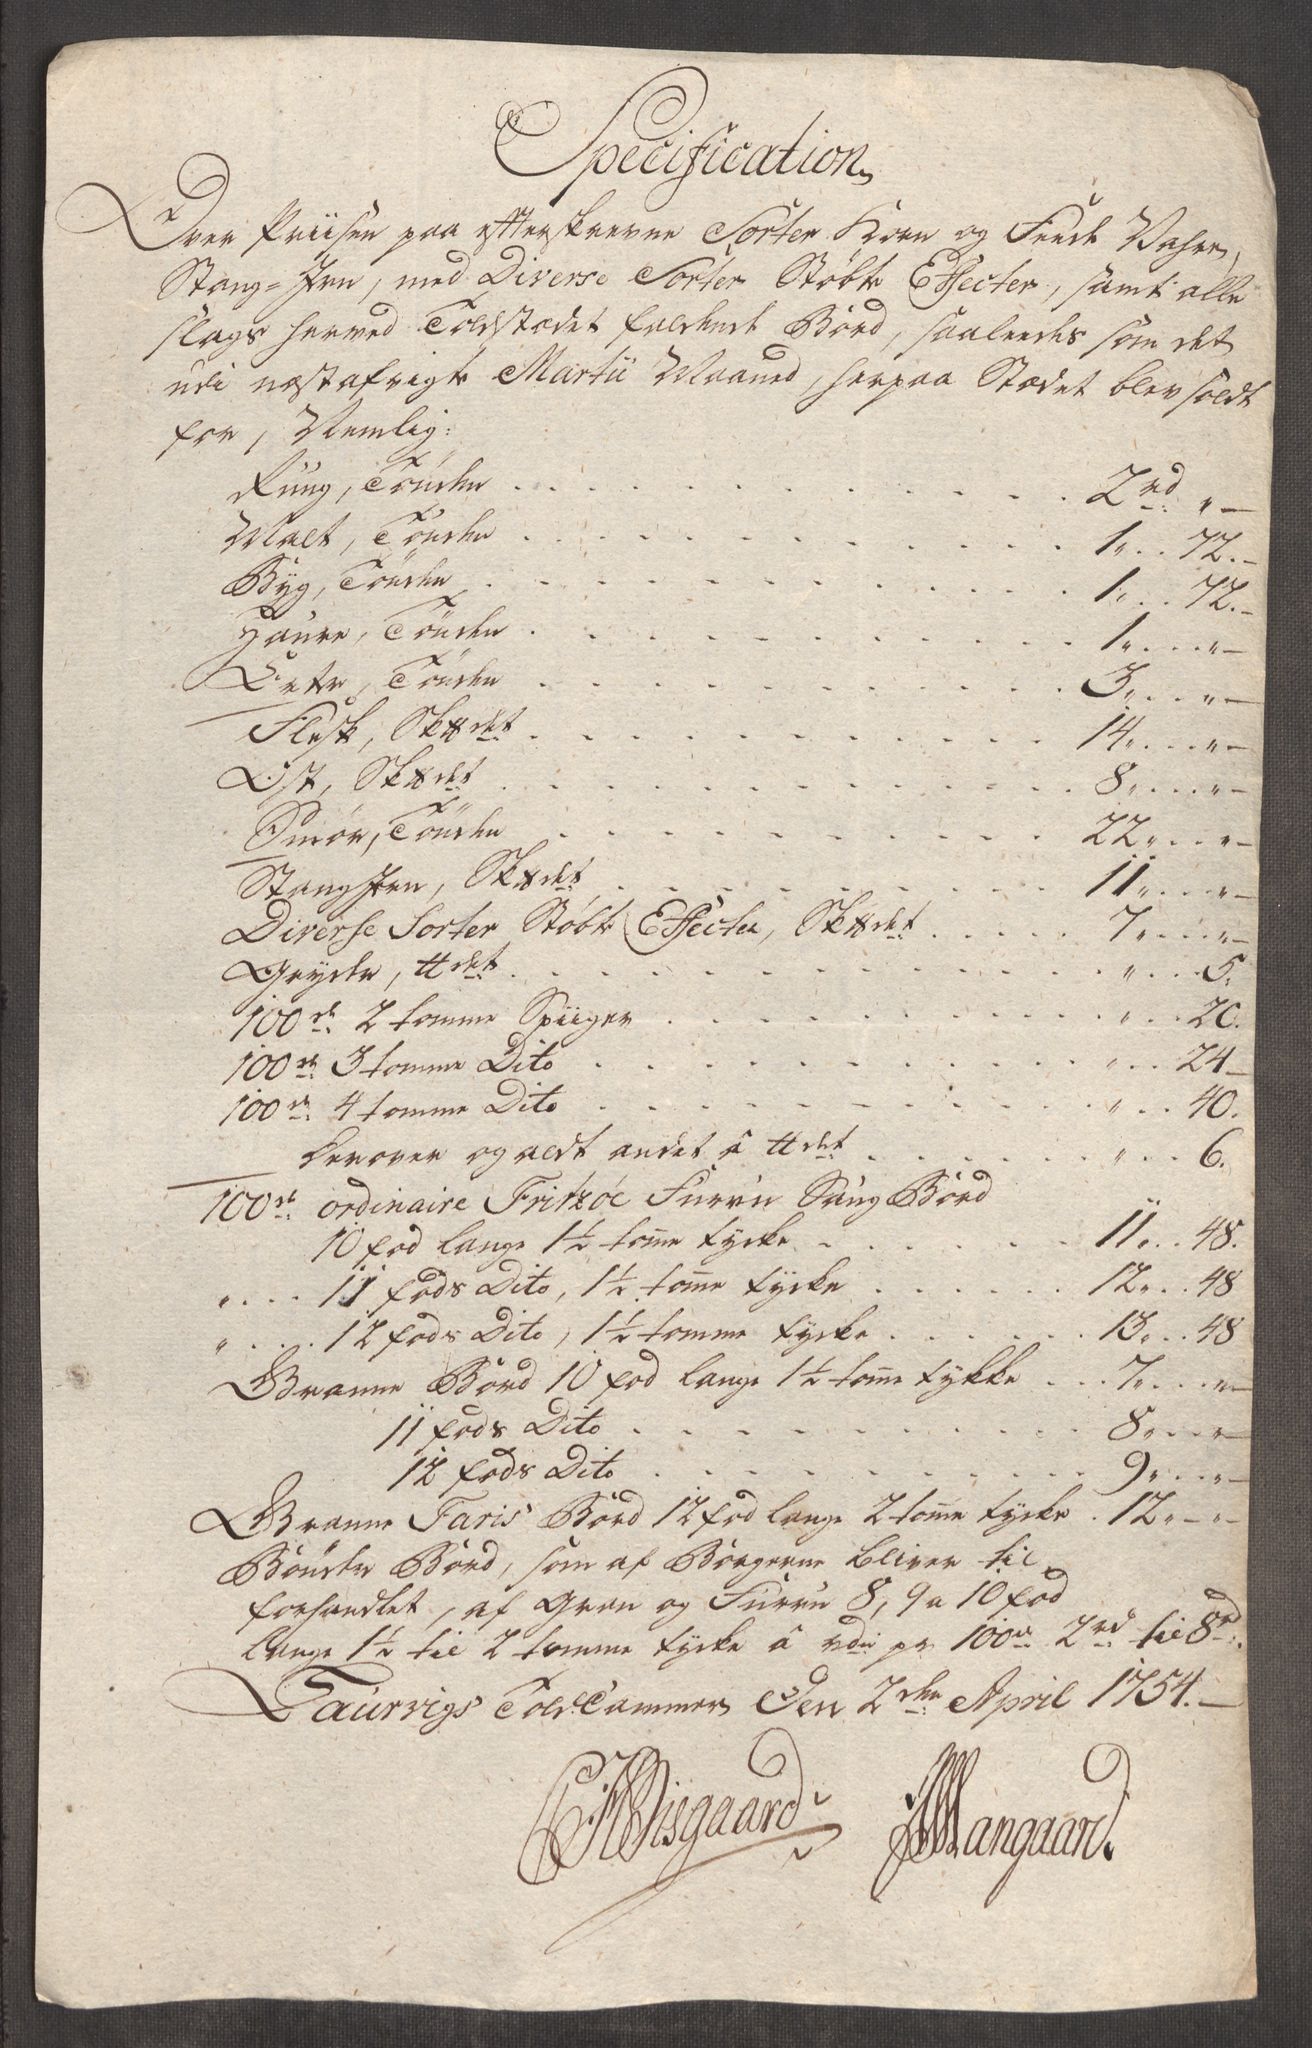 Specification
Over Priisen paa efterskrevne Sorter Korn og Feede Vahre,
Stang-Jern, med Diverse Sorter Støbte Effecter, samt alle
slags herved Toldstædet faldende Bord, saaleedes som det
udi næstafvigte Martii Maaned, herpaa Stædet blev soldt
for, Nemlig:
Rüug, Tönden . . . 2 rd: „ —
Malt, Tönden . . . 1 „ . . 72. —
Byg, Tönden . . . 1 „ . . 72. —
Haure, Tönden . . . 1 „ . . „ —
Erter, Tönden . . . 3 „ . . „ —
Flesk, Sk℔det . . . 14 „ . . „ —
Ost, Sk℔det . . . 8 „ . . „ —
Smör, Tönden . . . 22 „ . . „ —
Stang Jern, Sk℔det . . . 11 „ . . „ —
Diverse Sorter Støbte Effecter, Sk℔det . . . 7 „ . . „ —
Gryder, ℔det . . . „ . . 5.
100de 2 tomme Spiiger . . . „ . . 20.
100de 3 tomme Dito . . . „ . . 24 —
100de 4 tomme Dito . . . „ . . 40.
herover og aldt andet â ℔det . . . „ . . 6.
100de ordinaire Fritzöe Furru Saug Bord
10 fod lange 1½ tom̄e tycke . . . 11 „ . . 48.
„ . . . 11 fods Dito, 1½ tom̄e tycke . . . 12 „ . . 48
„ . . . 12 fods Dito, 1½ tomme tycke . . . 13 „ . . 48
Granne Bord 10 fod lange 1½ tom̄e tykke . . . 7 „ . . „ —
11 fods Dito . . . 8 „ . . „ —
12 fods Dito . . . 9 „ . . „ —
Granne Faris Bord 12 fod lange 2 tom̄e tycke . 12 „ — „ —
Bönder Bord, som af Borgerne bliver til
forhandlet, af Gran og Furru 8, 9 a 10 fod
lange 1½ til 2 tomme tycke â pr 100de 2 rd til 8 rd:
Laurvigs Told Cammer Den 2den April 1754. —
Wisgaard Mangaard.